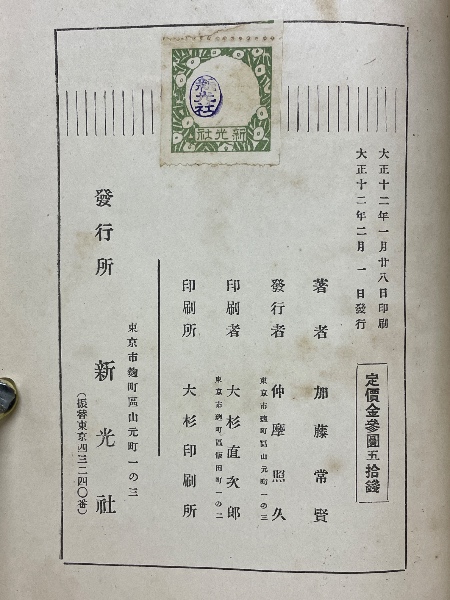 新光社
新光社
大正十二年一月廿八日印刷
大正十二年二月一日發行
定價金參圓五拾錢
著者 加藤常賢
發行者 仲摩照久
東京市麹町區山元町一の三
印刷者 大杉直次郎
東京市麹町區飯田町一の二
印刷所 大杉印刷所
東京市麹町區山元町一の三
發行所 新光社
(振替東京四三二四〇番)